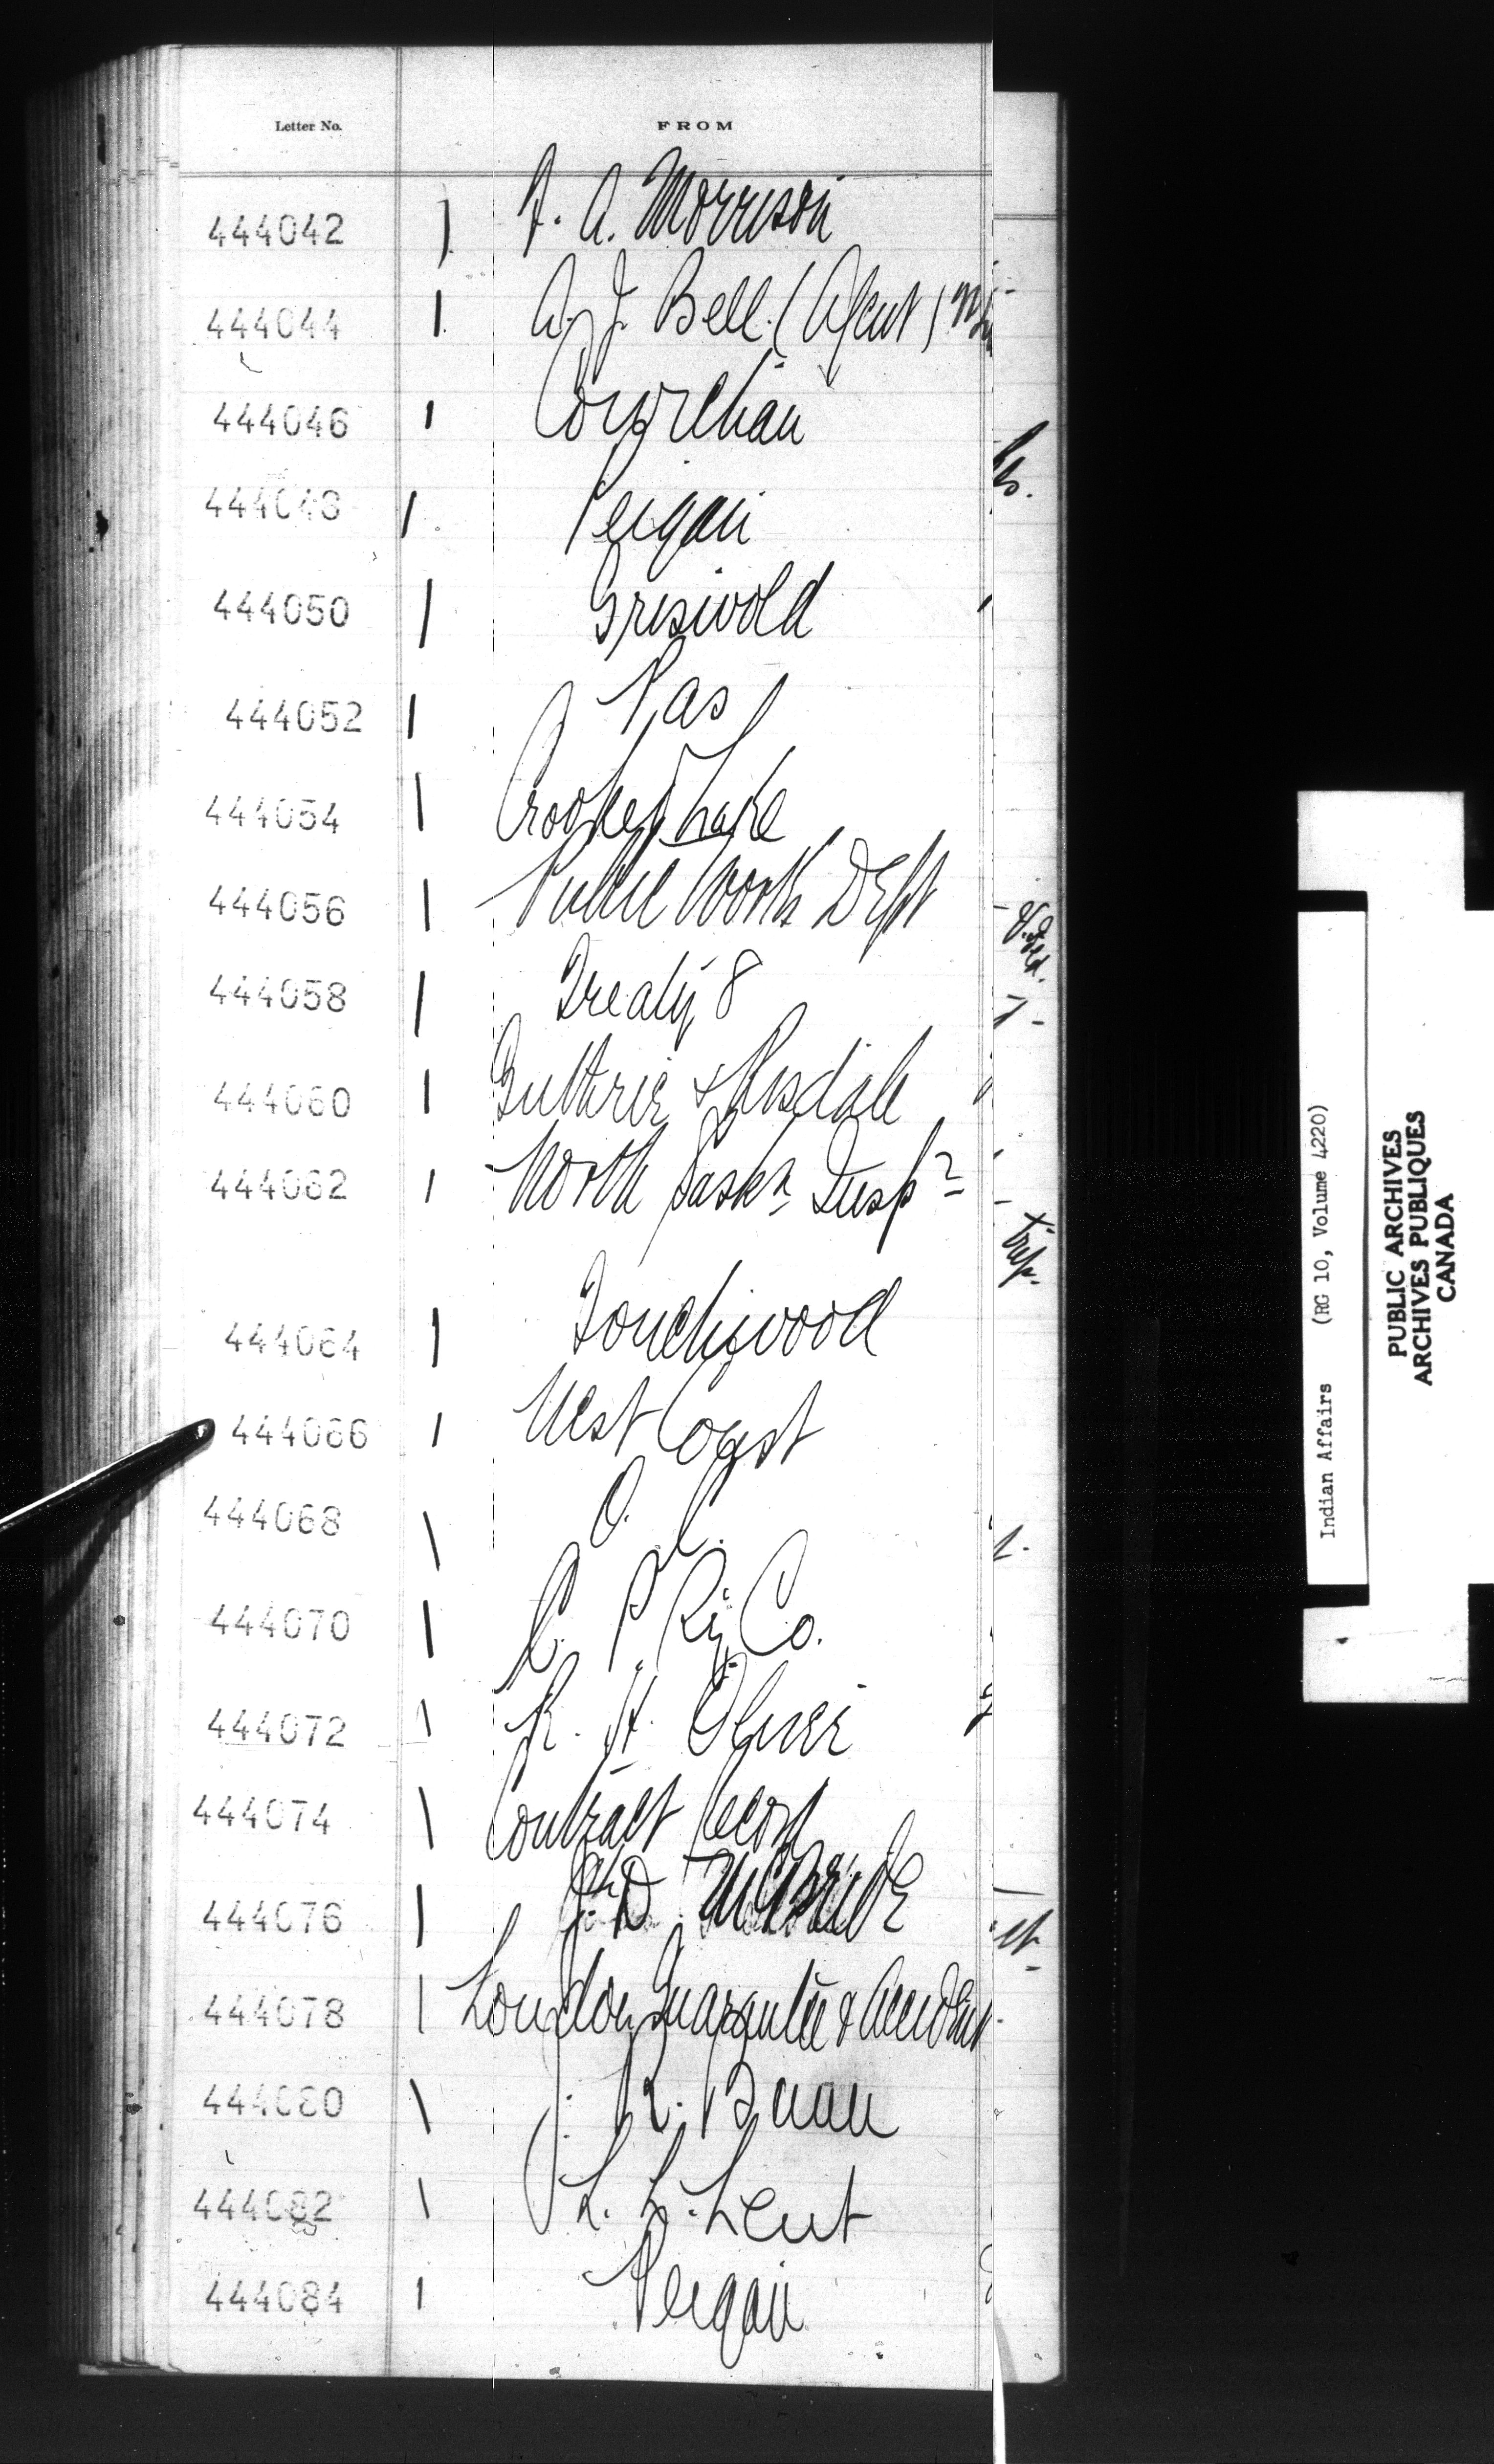 Letter No. FROM
444042 F. A. Morrison
444044 A. J. Bell (Agent)
444046 Cowichan
444048 Peigan
444050 Griswold
444052 Pas
444054 Crooked Lake
444056 Public Works Dept
444058 Treaty 8
444060 Guthrie &
444062 North Saskn Inspn
444064 Touchwood
444066 West Coast
444068 O. C.
444070 C. P. Ry Co.
444072 R. H. Oliver
444074 Contract Record
444076 J. D. McBride
444078 London Guarantee & Accident
444080 J. R. Bunn
444082 L. L. Lent
444084 Peigan
Indian Affairs (RG 10, Volume 4220)
PUBLIC ARCHIVES
ARCHIVES PUBLIQUES
CANADA